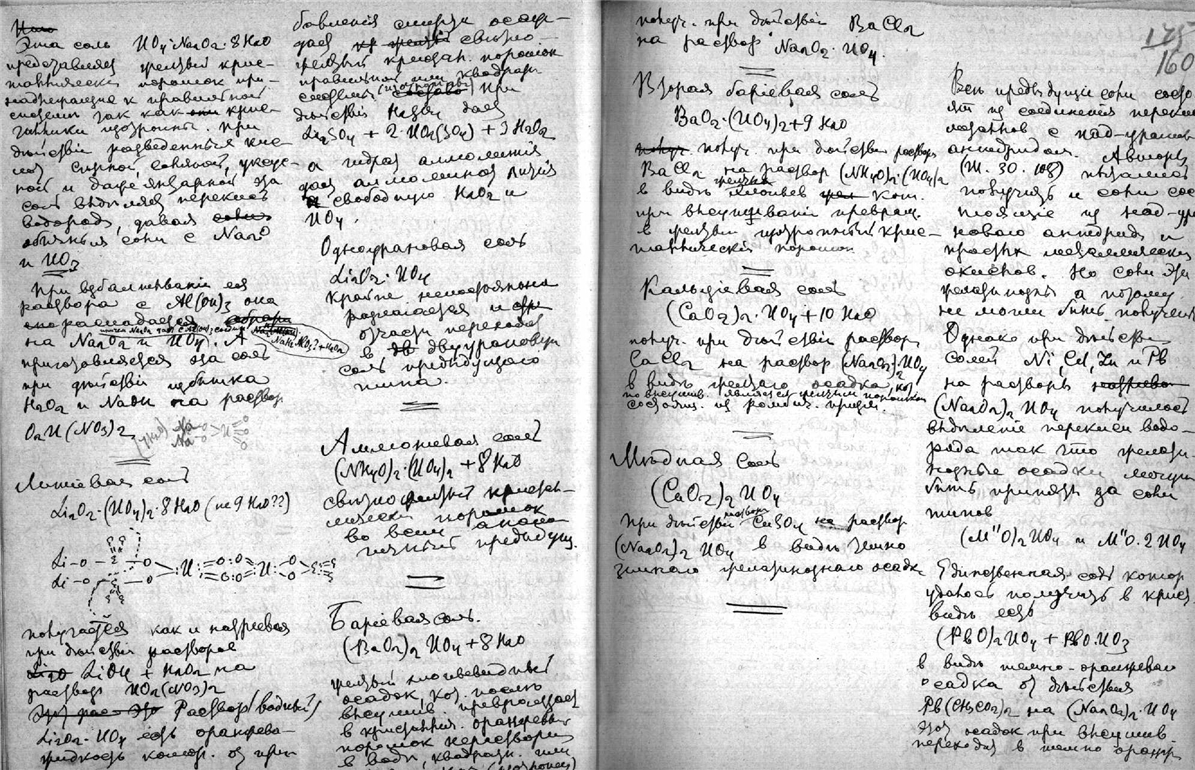 Эта соль UO4·Na2O2·8H2O
представляет желтый крис-
таллическ порошок при-
надлежащие к правильной
системе так как крис-
таллики изотропны. При
дѣйствии разведенных кис-
лот, серной, соляной, уксус-
ной и даже янтарной эта
соль выделяет перекись
водорода, давая
соли с Na2O
и UO3
При взбалтывании ея
раствора с Al(OH)3 она
распадается
на Na2O2 и UO4. А
приготовляется эта соль
при дѣйствии избытка
H2O2 и NaOH на раствор
O2U(NO3)2
Литиевая соль
Li2O2·(UO4)2·8H2O (не 9 H2O??)
Li-O-
Li-O-
получается как и натриевая
при дѣйствии растворов
LiOH + H2O2 на
раствор UO2(NO3)2
Раствор (водный)
Li2O2·UO4 есть оранжева-
жидкость котор. от при
бавления спирта осаж-
дает свѣтло-
желтый кристал. порошок
правильной или квадратн
системы (изотропный) при
дѣйствии H2SO4 дает
Li2SO4 + 2·UO4(SO4) + 3H2O2
а гидрат аллюминия
дает аллюминат лития
и свободную H2O2 и
UO4.
Одноурановая соль
Li2O2·UO4
Крайне непостоянна
разлагается и
отчасти переходит
в двууроновую
соль предыдущего
типа.
Аммониевая соль
(NH4O)2·(UO4)2 + 8H2O
свѣтло желтый кристал-
лическ порошок
во всем анало-
гичный предыдущ.
Бариевая соль.
(BaO2)2 UO4 + 8H2O
желтый хлопьевидный
осадок кот. послѣ
высушив. превращает
в кристаллич. оранжевый
порошок нерастворим
в водѣ, квадратн. или
получ. при дѣйствии BaCl2
на раствор Na2O2·UO4.
Вторая бариевая соль
BaO2·(UO4)2+9H2O
получ. при дѣйствии раствор
BaCl2 на раствор (NH4O)2·(UO4)2
в видѣ желтых хлопьев кот.
при высушивании превращ.
в желтый изотропный крис-
таллический порошок
Кальциевая соль
(CaO2)2·UO4+10H2O
получ. при дѣйствии раствор
CaCl2 на раствор (Na2O2)2·UO4
в видѣ желтаго осадка, кот
по высушив. является желтым порошком
состоящ. из ромбич. призм.
Мѣдная соль
(CuO2)2 UO4
При дѣйствии раствора CuSO4 на раствор
(Na2O2)2 UO4 в видѣ темно
зеленаго желатинознаго осадк
175
160
Всѣ предыдущие соли состо
ят из соединения перекиси
металлов с над-уранов
ангидридом. Авторы
(Ж. 30. 105) пытались
получить и соли сос
тоящие из над-ур
новаго ангидрида и
простых металлических
окислов. Но соли эти
желатинозны а потому
не могли быть получены
Однако при дѣйствии
солей Ni, Cu, Zn и Pb
на раствор
(Na2O2)2 UO4 получилось
выдѣление перекиси водо-
рода так что желати-
нозные осадки могут
быть приняты за соли
типов
(M"O)2 UO4 и M"O·2UO4
Единственная соль котор
удалось получить в крист
видѣ есть
(PbO)2UO4 + PbO·UO3
в видѣ темно-оранжеваго
осадка от дѣйствия
Pb(CH3CO2)2 на (Na2O2)2·UO4
Этот осадок при высушив.
переходит в темно оранж